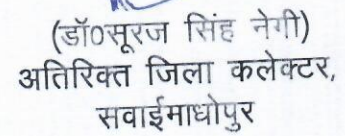 (डॉ०सूरज सिंह नेगी)
अतिरिक्त जिला कलेक्टर,
सवाईमाधोपुर